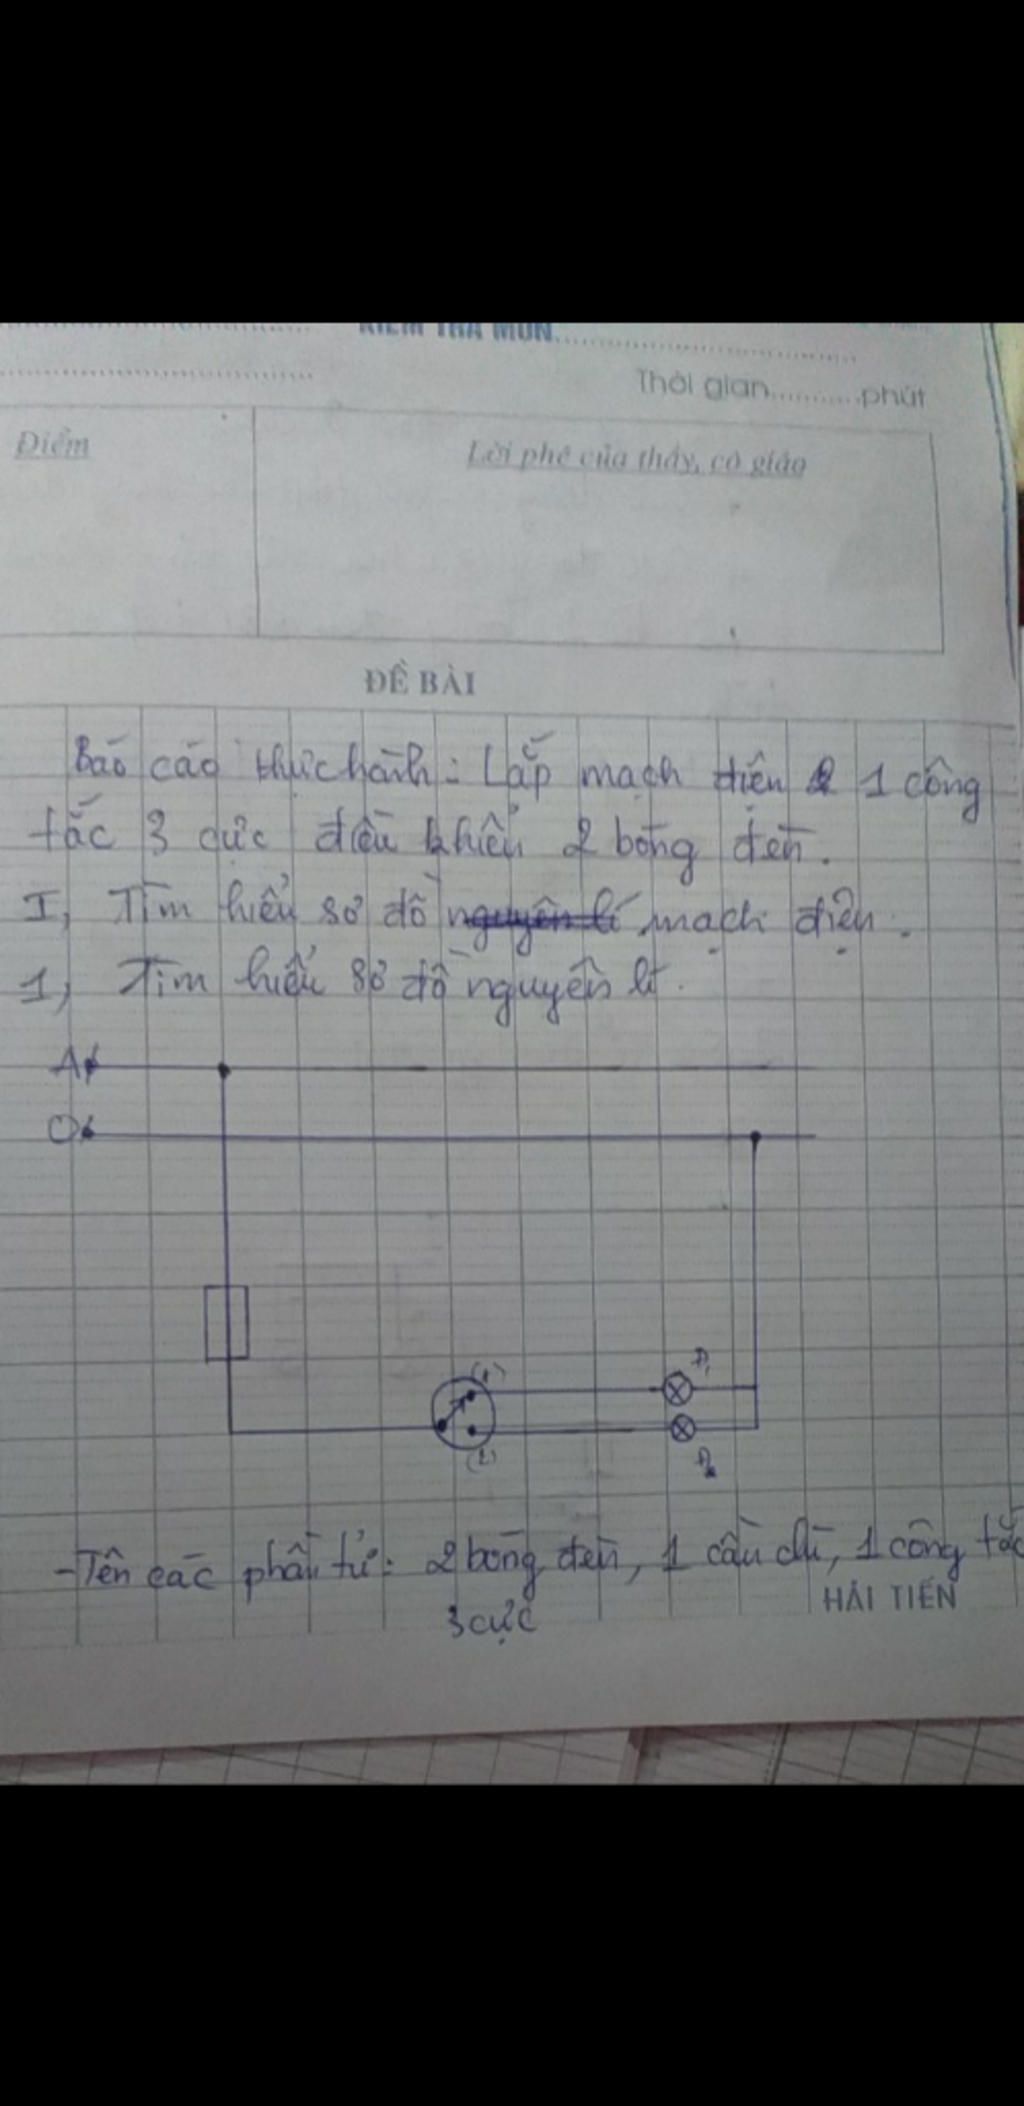 KIỂM TRA MÔN..............................
Thời gian...........phút
Điểm
Lời phê của thầy, cô giáo
ĐỀ BÀI
Báo cáo thực hành: Lắp mạch điện 1 công
tắc 3 cực điều khiển 2 bóng đèn.
I, Tìm hiểu sơ đồ nguyên lí mạch điện.
1, Tìm hiểu sơ đồ nguyên lí.
A
O
(1)
Đ1
(2)
Đ2
-Tên các phần tử: 2 bóng đèn, 1 cầu chì, 1 công tắc
3 cực
HẢI TIẾN